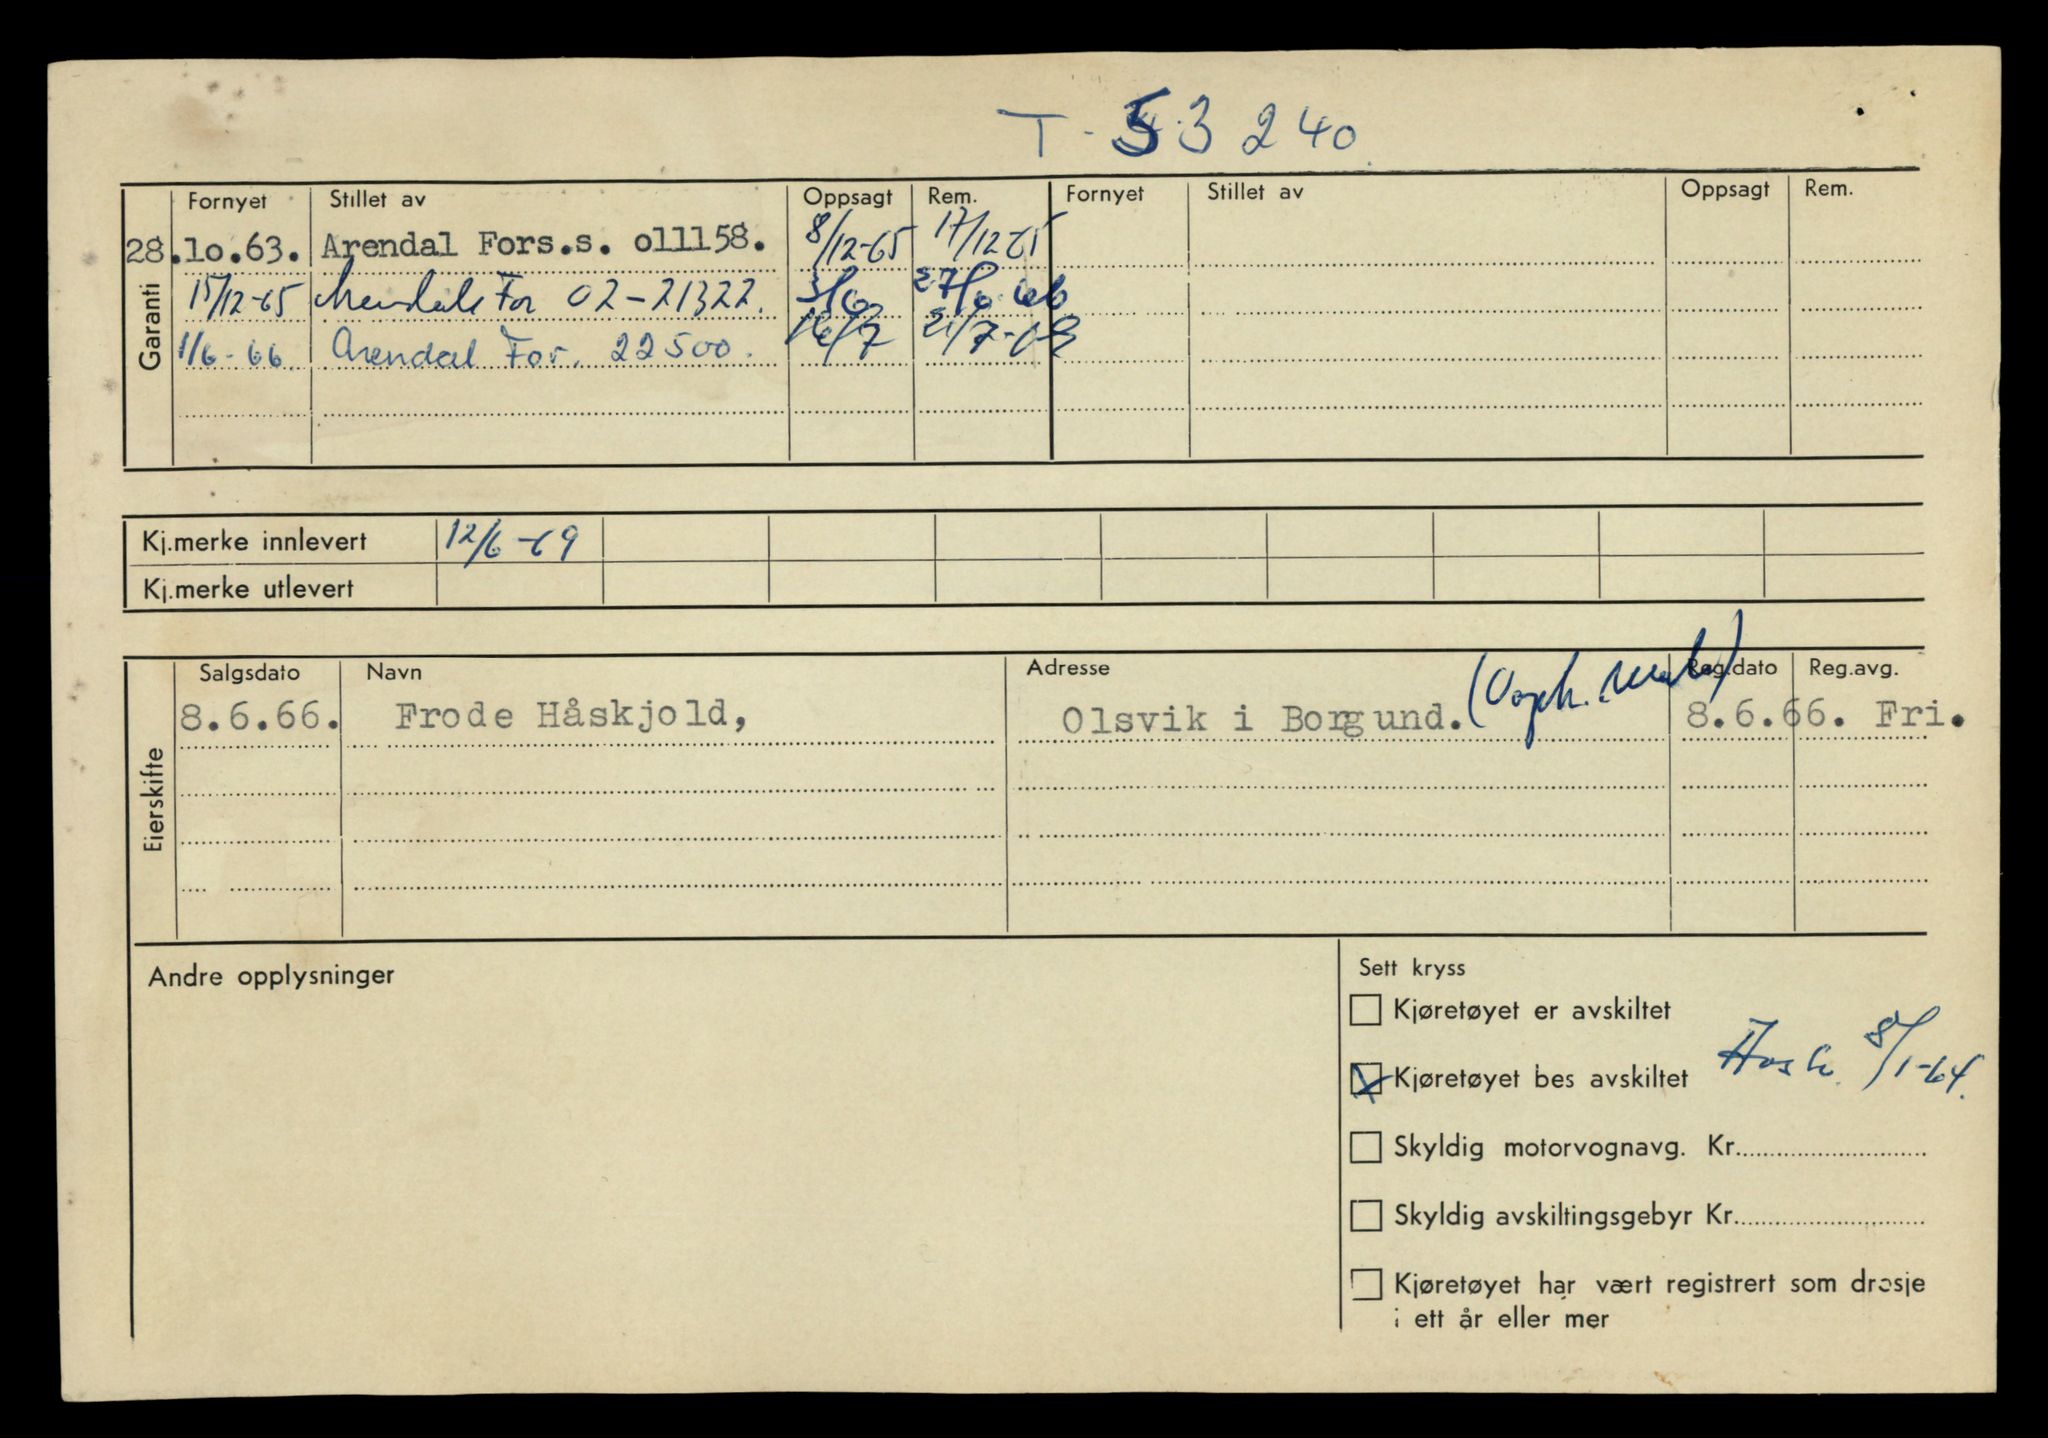 T-53240
Garanti
Fornyet Stillet av Oppsagt Rem. Fornyet Stillet av Oppsagt Rem.
28.10.63. Arendal Fors.s. 011158. 8/12-65 17/12-65
15/12-65 For 02-21322.
1/6-66. Arendal For. 22500.
Kj.merke innlevert 12/6-69
Kj.merke utlevert
Eierskifte
Salgsdato Navn Adresse Reg.dato Reg.avg.
8.6.66. Frode Håskjold, Olsvik i Borgund. 8.6.66. Fri.
Andre opplysninger
Sett kryss
Kjøretøyet er avskiltet
Kjøretøyet bes avskiltet 8/1-64.
Skyldig motorvognavg. Kr.
Skyldig avskiltingsgebyr Kr.
Kjøretøyet har vært registrert som drosje
i ett år eller mer